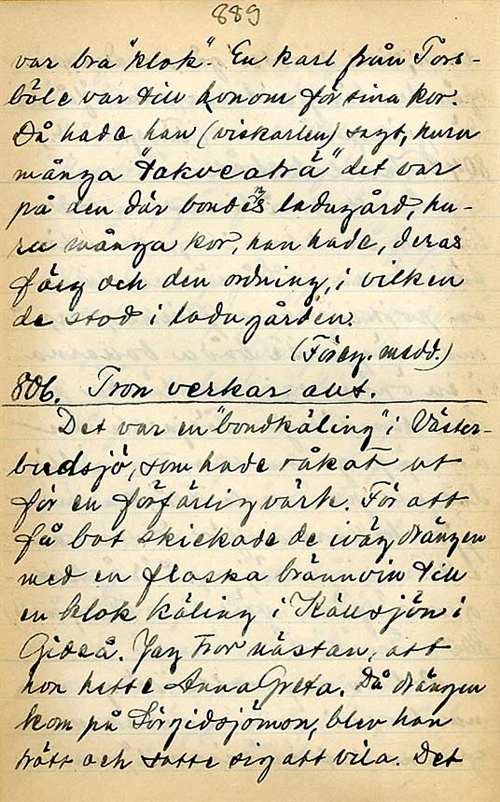 889
var bra "klok". En karl från Tors-
böle var till honom för sina kor.
Då hade han (viskarlen) sagt, huru
många "takveaträ" det var
på den där bondens ladugård, hu-
ru många kor, han hade, deras
färg och den ordning, i vilken
de stod i ladugården.
(Föreg. medd.)
806. Tron verkar allt.
Det var en "bondkäling" i Väster-
budsjö, som hade råkat ut
för en förfärlig värk. För att
få bot skickade de iväg drängen
med en flaska brännvin till
en klok käling i Källsjön i
Gideå. Jag tror nästan, att
hon hette Anna Greta. Då drängen
kom på Sörgidsjömon, blev han
trött och satte sig att vila. Det